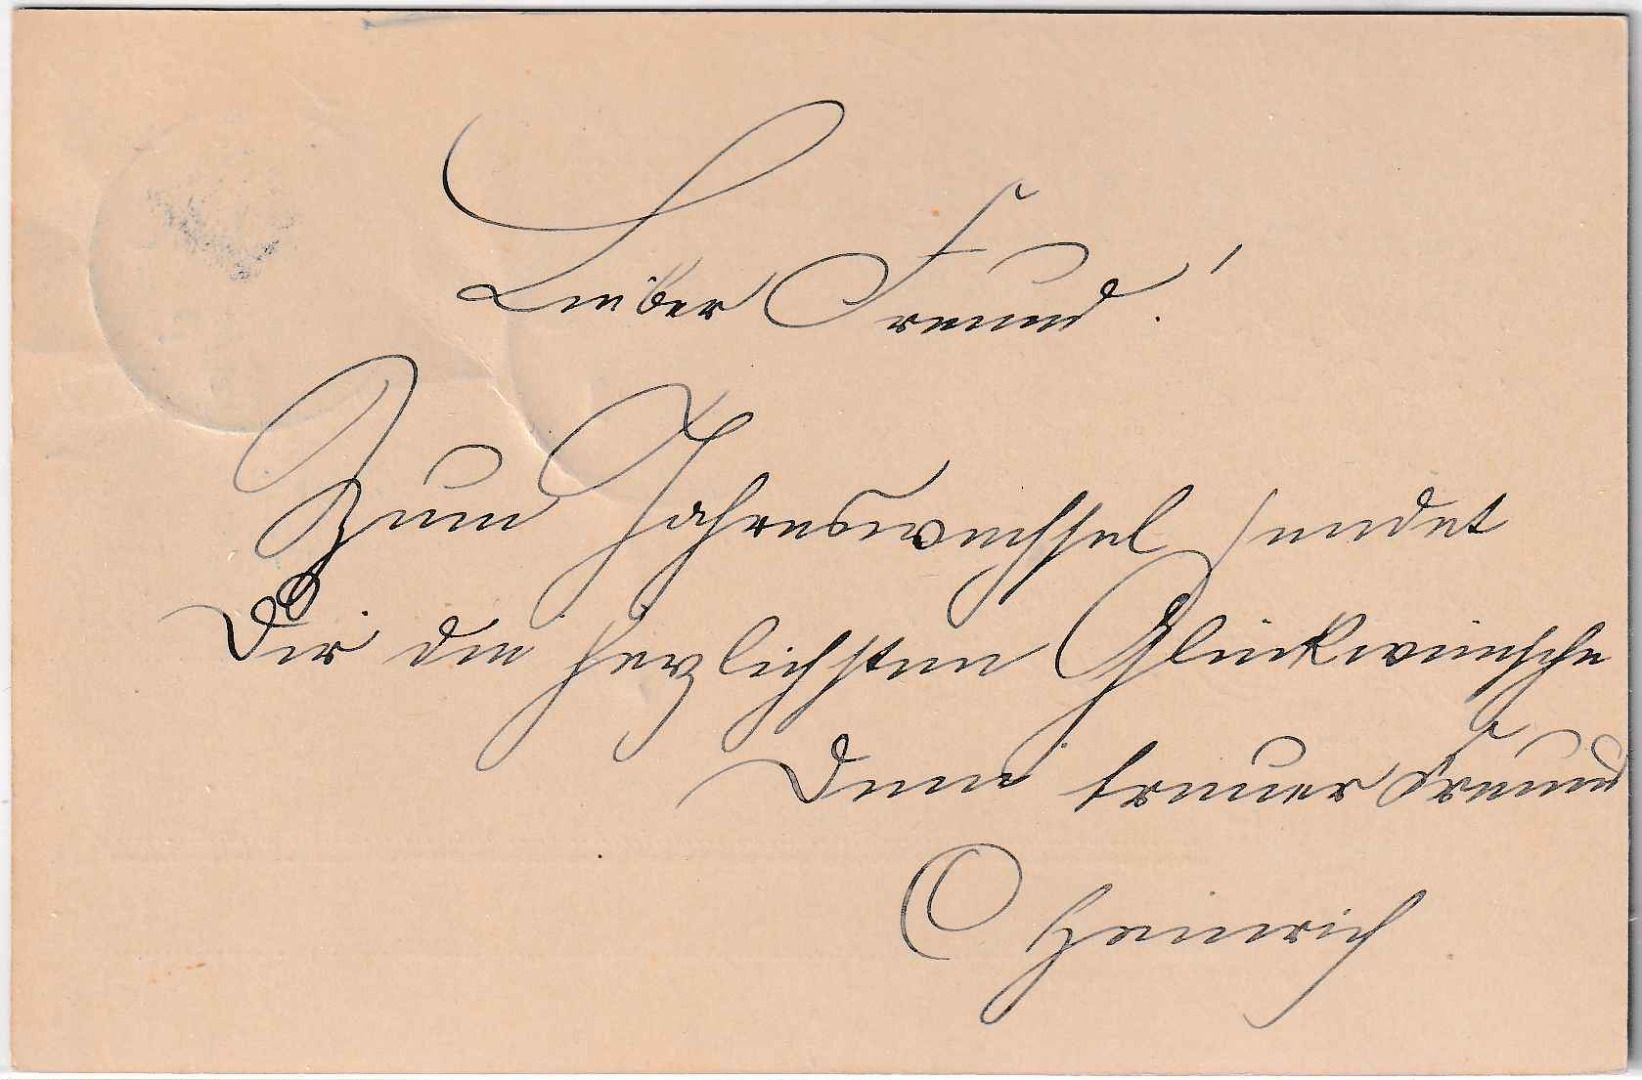 Lieber Freund!
Zum Jahreswechsel sendet
Dir die herzlichsten Glückwünsche
Dein treuer Freund
C Heinrich